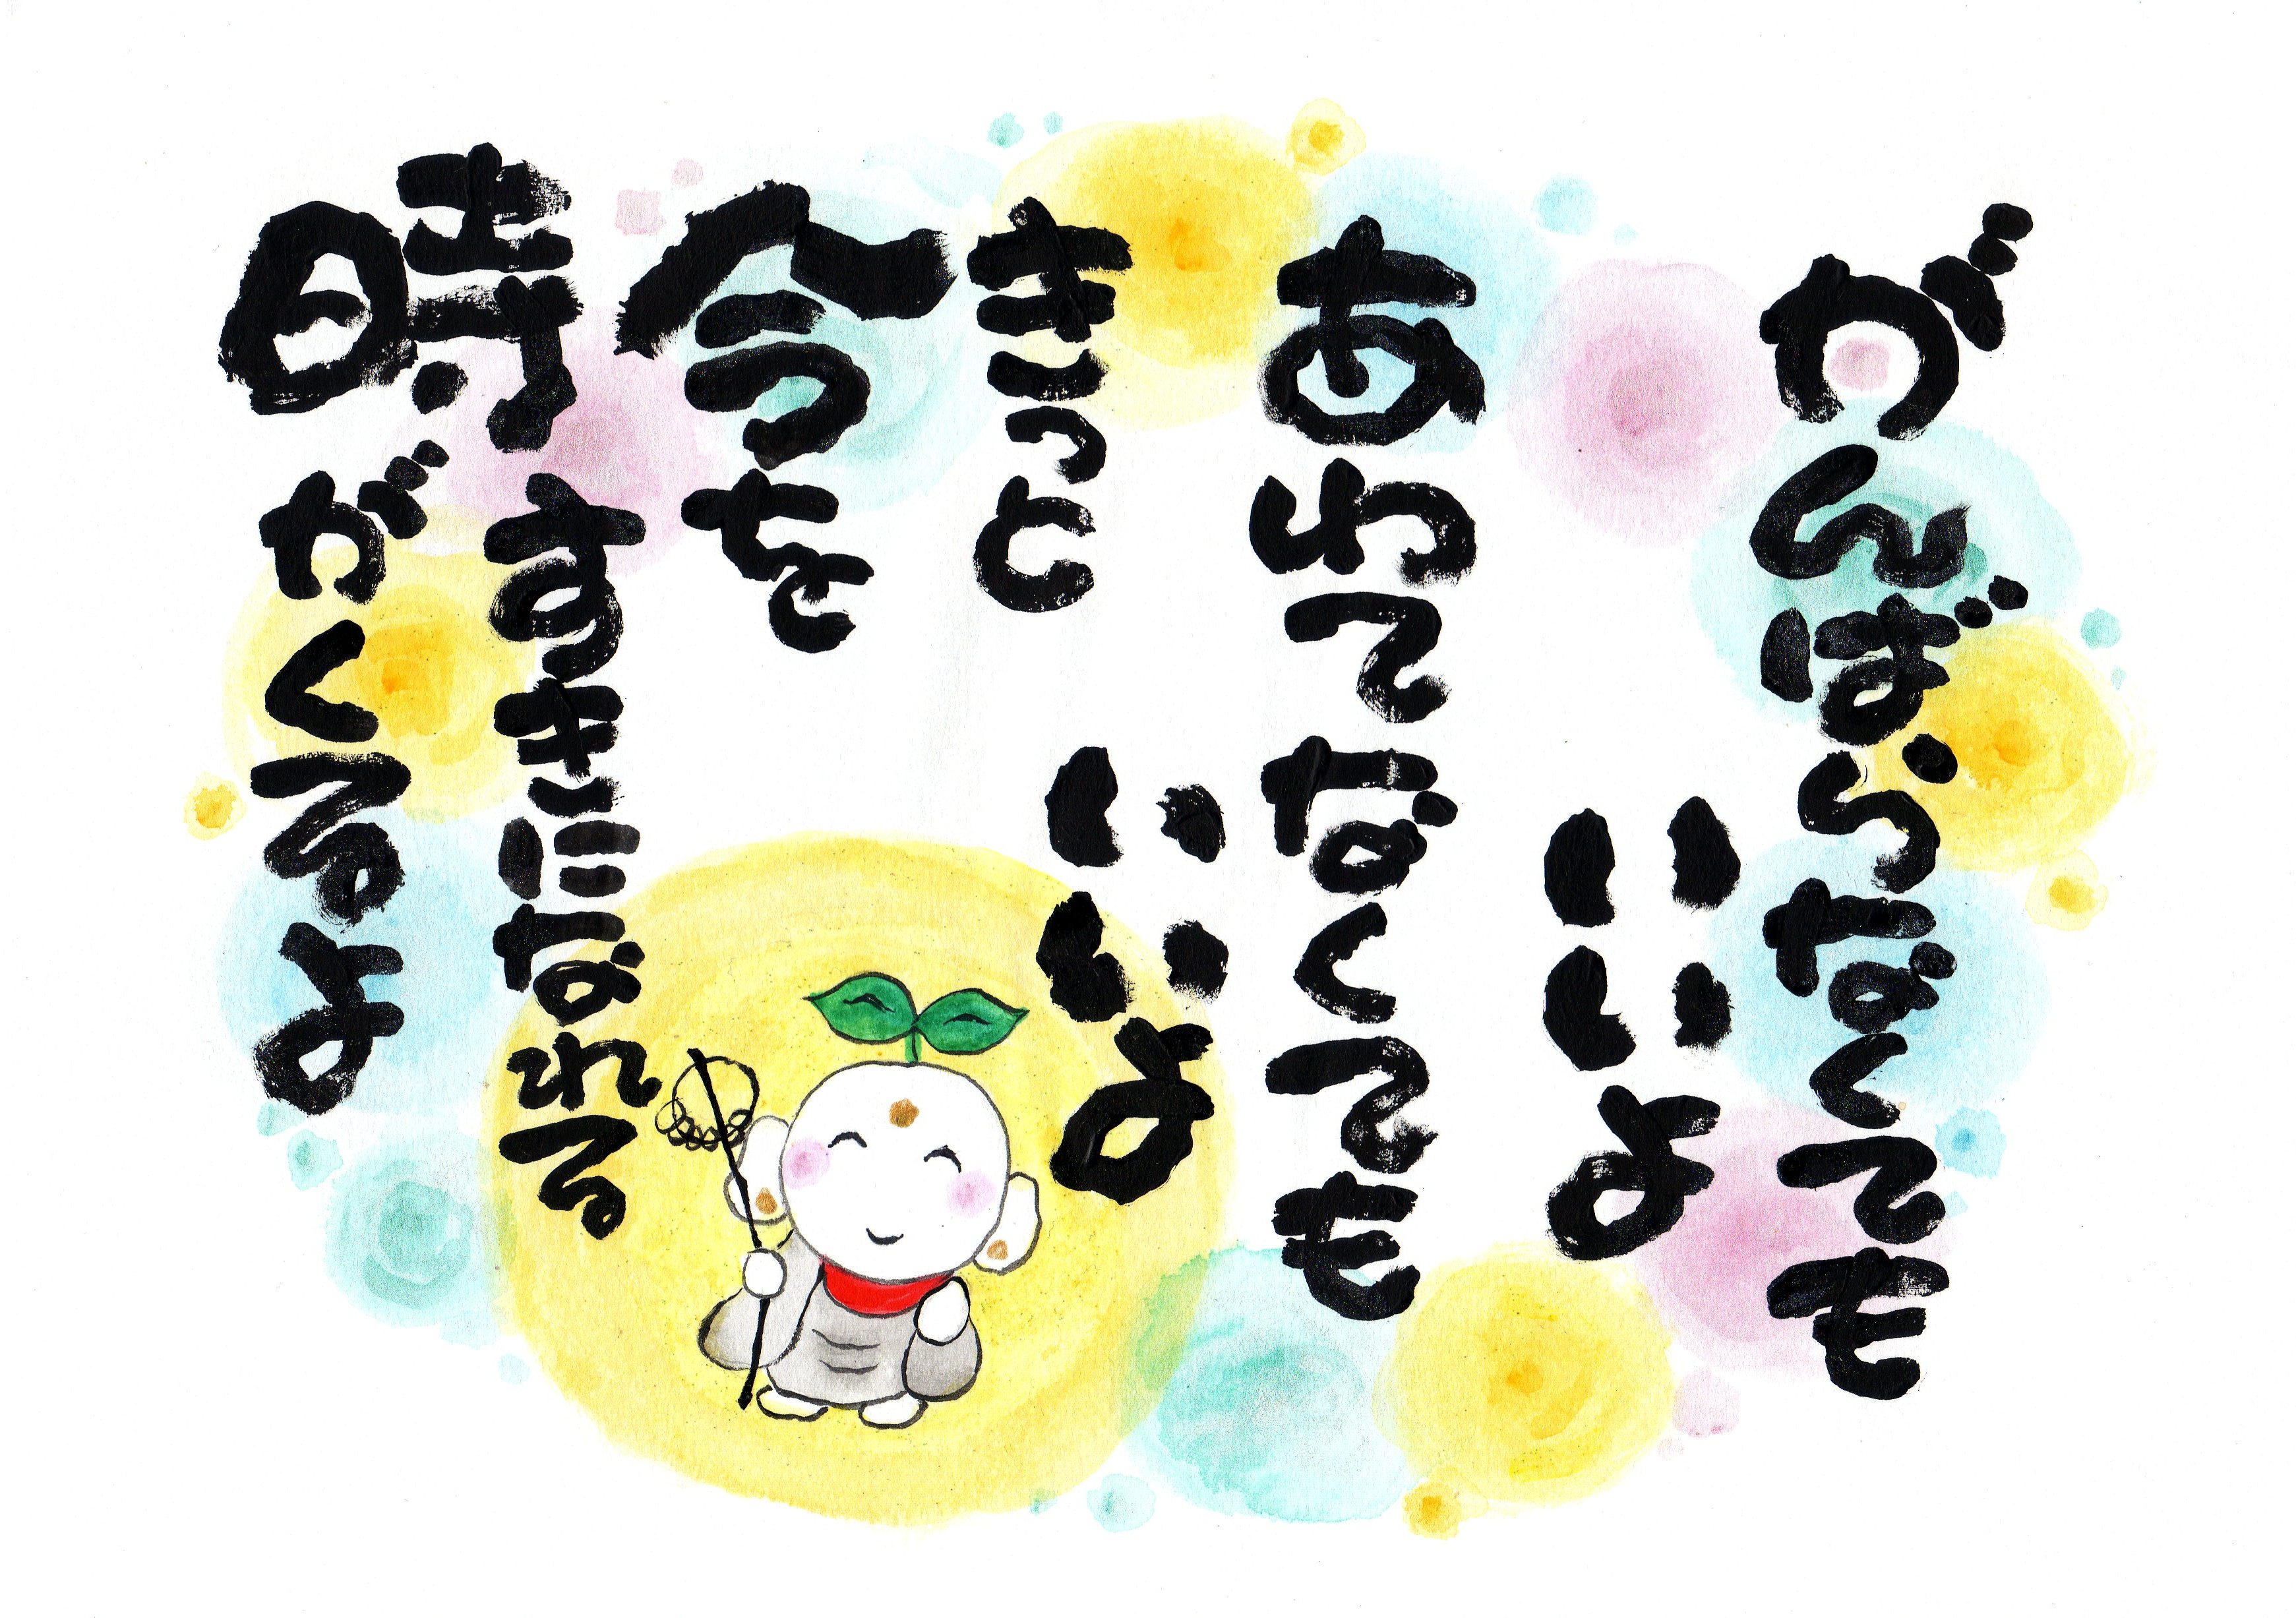 がんばらなくても
いいよ
あわてなくても
いいよ
きっと
今を
すきになれる
時がくるよ